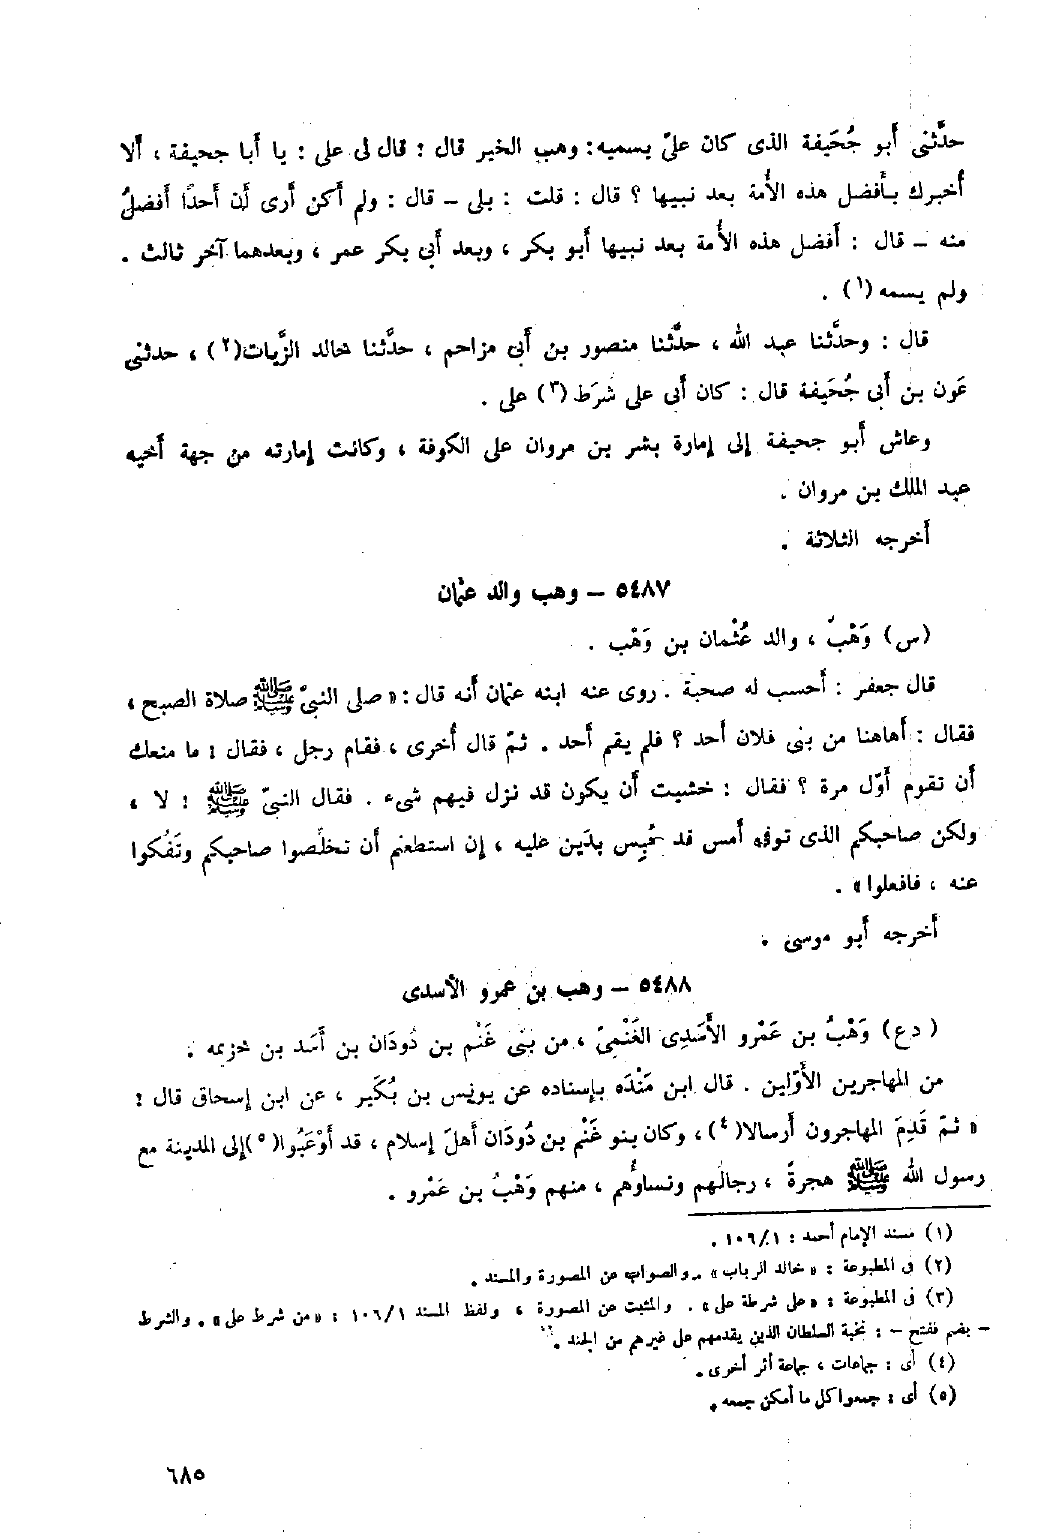 حدَّثنى أَبو جُحَيفة الذى كان علىّ يسميه: وهب الخير قال : قال لى على : يا أَبا جحيفة ، أَلا
أُخبرك بأَفضل هذه الأُمة بعد نبيها ؟ قال : قلت : بلى – قال : ولم أَكن أَرى أَن أَحدًا أَفضلُ
منه – قال : أَفضل هذه الأُمة بعد نبيها أَبو بكر ، وبعد أَبى بكر عمر ، وبعدهما آخر ثالث .
ولم يسمه (١) .
قال : وحدَّثنا عبد الله ، حدَّثنا منصور بن أَبى مزاحم ، حدَّثنا خالد الزَّيات(٢) ، حدثنى
عَون بن أَبى جُحَيفة قال : كان أَبى على شُرَط (٣) على .
وعاش أَبو جحيفة إلى إمارة بشر بن مروان على الكوفة ، وكانت إمارته من جهة أَخيه
عبد الملك بن مروان .
أَخرجه الثلاثة .
٥٤٨٧ – وهب والد عثمان
(س) وَهْبٌ ، والد عُثْمان بن وَهْب .
قال جعفر : أَحسب له صحبة . روى عنه ابنه عثمان أَنه قال : « صلى النبىّ ﷺ صلاة الصبح ،
فقال : أَهاهنا من بنى فلان أَحد ؟ فلم يقم أَحد . ثمّ قال أُخرى ، فقام رجل ، فقال : ما منعك
أَن تقوم أَوّل مرة ؟ فقال : خشيت أَن يكون قد نزل فيهم شىء . فقال النبىّ ﷺ : لا ،
ولكن صاحبكم الذى توفى أَمس قد حُبِس بدَين عليه ، إن استطعتم أَن تخلِّصوا صاحبكم وتَفُكوا
عنه ، فافعلوا» .
أَخرجه أَبو موسى .
٥٤٨٨ – وهب بن عمرو الأسدى
( دع) وَهْبُ بن عَمْرو الأَسَدِى الغَنْمِىّ ، من بنى غَنْم بن دُودَان بن أَسَد بن خزيمه .
من المهاجرين الأَوّلين . قال ابن مَنْدَه بإسناده عن يونس بن بُكَير ، عن ابن إسحاق قال :
« ثمّ قَدِمَ المهاجرون أَرسالا(٤) ، وكان بنو غَنْم بن دُودَان أَهلَ إسلام ، قد أَوْعَبُوا(٥) إلى المدينة مع
رسول الله ﷺ هجرةً ، رجالُهم ونساؤُهم ، منهم وَهْبُ بن عَمْرو .
(١) مسند الإمام أحمد : ١٠٦/١ .
(٢) فى المطبوعة : «خالد الرباب» . والصواب عن المصورة والمسند .
(٣) فى المطبوعة : «على شرطة على» . والمثبت عن المصورة ، ولفظ المسند ١٠٦/١ : «من شرط على» . والشرط
– بضم ففتح – : نخبة السلطان الذين يقدمهم على غيرهم من الجند .
(٤) أى : جماعات ، جماعة أثر أخرى .
(٥) أى : جمعوا كل ما أمكن جمعه .
٦٨٥